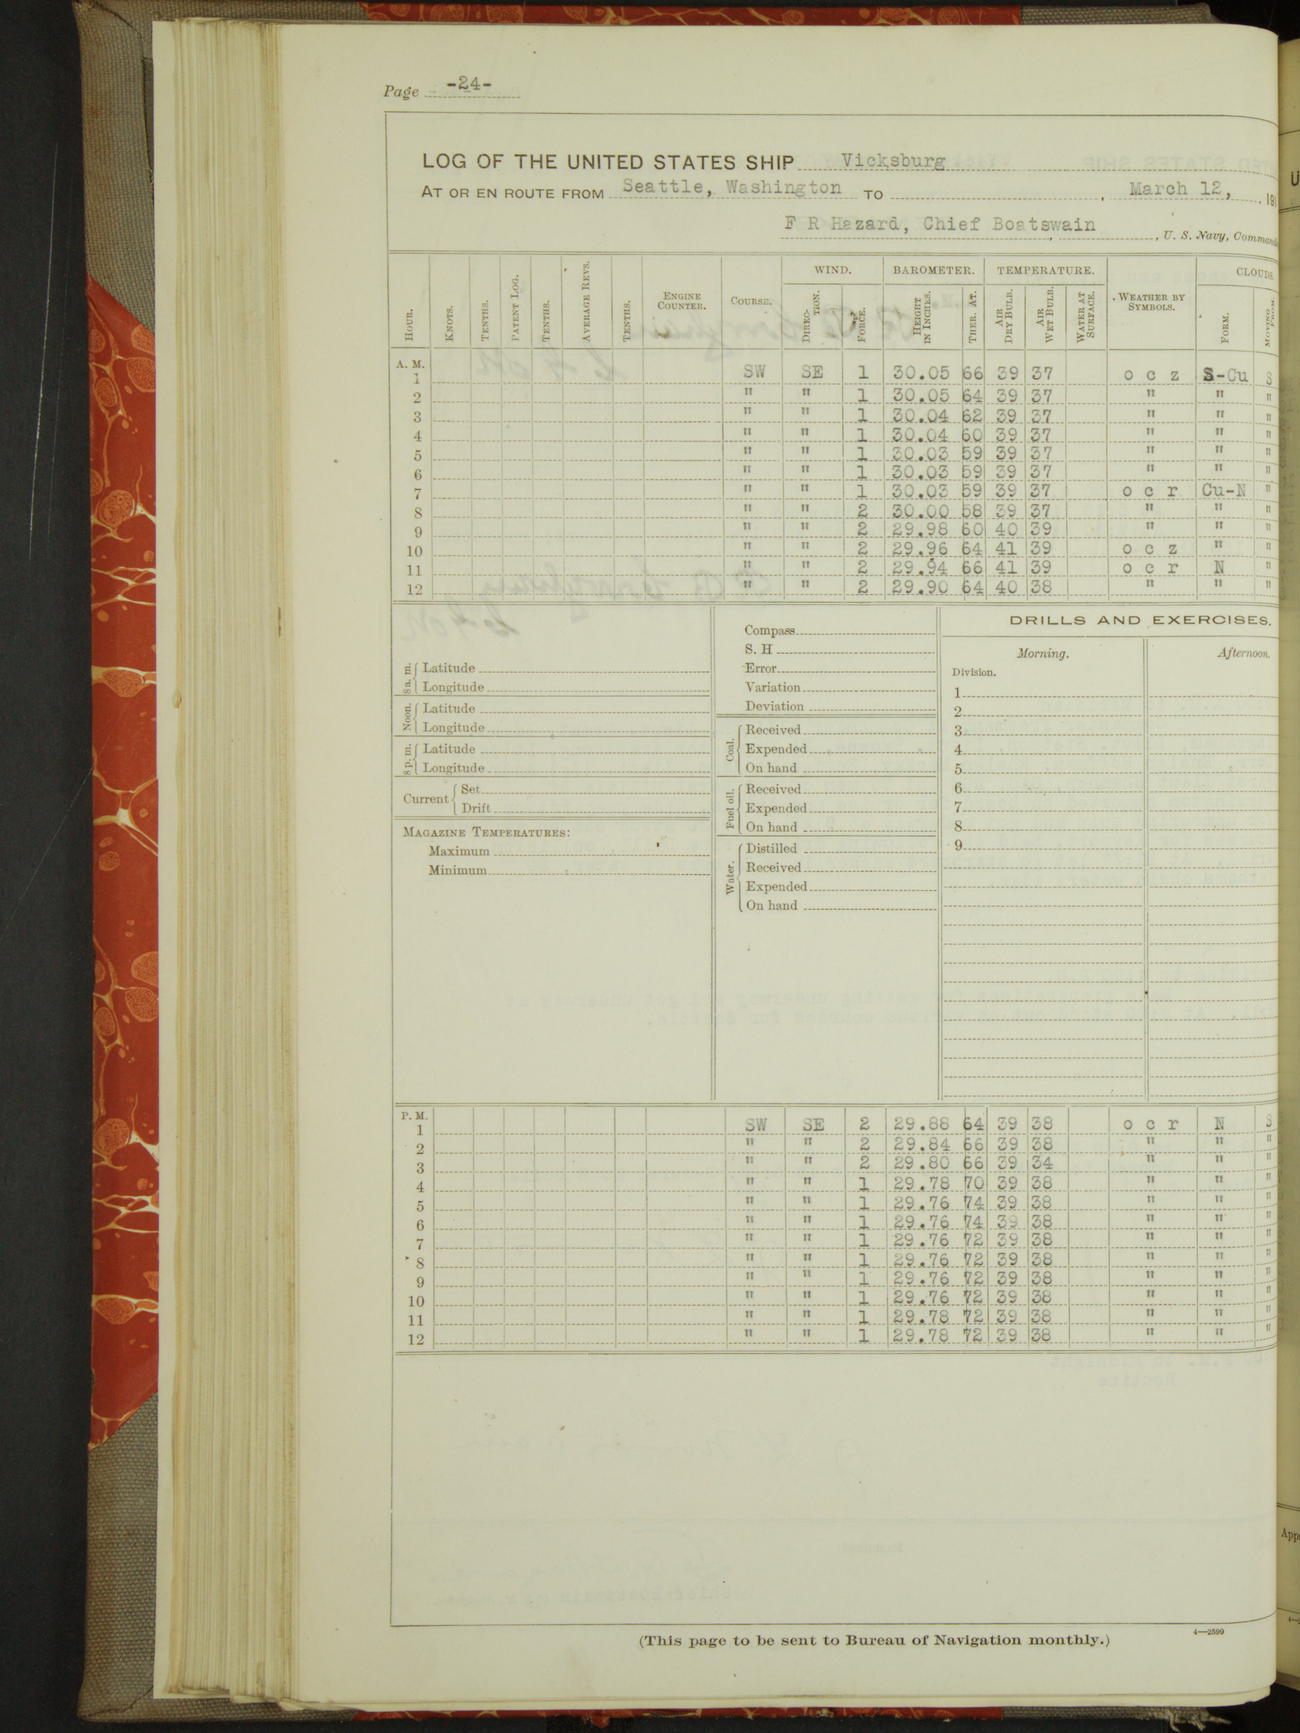 Page -24-
LOG OF THE UNITED STATES SHIP Vicksburg
AT OR EN ROUTE FROM Seattle, Washington TO , March 12, , 191
F R Hazard, Chief Boatswain , U. S. Navy, Command
HOUR. KNOTS. TENTHS. PATENT LOG. TENTHS. AVERAGE REVS. TENTHS. ENGINE COUNTER. COURSE. WIND. DIRECTION. FORCE. BAROMETER. HEIGHT IN INCHES. THER. AT. TEMPERATURE. AIR DRY BULB. AIR WET BULB. WATER AT SURFACE. WEATHER BY SYMBOLS. CLOUDS. FORM. MOVING FROM.
A. M.
1 SW SE 1 30.05 66 39 37 o c z S-Cu S
2 " " 1 30.05 64 39 37 " " "
3 " " 1 30.04 62 39 37 " " "
4 " " 1 30.04 60 39 37 " " "
5 " " 1 30.03 59 39 37 " " "
6 " " 1 30.03 59 39 37 " " "
7 " " 1 30.03 59 39 37 o c r Cu-N "
8 " " 2 30.00 58 39 37 " " "
9 " " 2 29.98 60 40 39 " " "
10 " " 2 29.96 64 41 39 o c z " "
11 " " 2 29.94 66 41 39 o c r N "
12 " " 2 29.90 64 40 38 " " "
8 a. m. Latitude
Longitude
Noon. Latitude
Longitude
8 p. m. Latitude
Longitude
Current Set
Drift
MAGAZINE TEMPERATURES:
Maximum
Minimum
Compass
S. H
Error
Variation
Deviation
Coal. Received
Expended
On hand
Fuel oil. Received
Expended
On hand
Water. Distilled
Received
Expended
On hand
DRILLS AND EXERCISES.
Morning. Afternoon.
Division.
1
2
3
4
5
6
7
8
9
P. M.
1 SW SE 2 29.88 64 39 38 o c r N S
2 " " 2 29.84 66 39 38 " " "
3 " " 2 29.80 66 39 34 " " "
4 " " 1 29.78 70 39 38 " " "
5 " " 1 29.76 74 39 38 " " "
6 " " 1 29.76 74 39 38 " " "
7 " " 1 29.76 72 39 38 " " "
8 " " 1 29.76 72 39 38 " " "
9 " " 1 29.76 72 39 38 " " "
10 " " 1 29.76 72 39 38 " " "
11 " " 1 29.78 72 39 38 " " "
12 " " 1 29.78 72 39 38 " " "
(This page to be sent to Bureau of Navigation monthly.)
4—2599